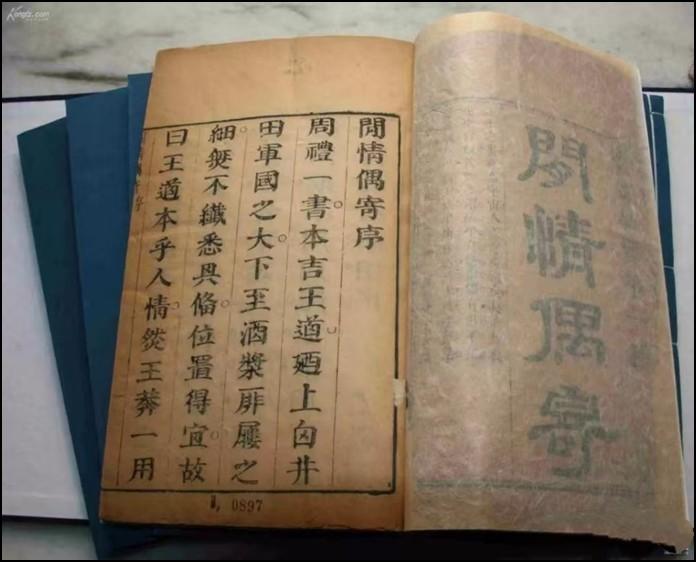 Kongfz.com
閒情偶寄
閒情偶寄序
周禮一書本言王道廼上自井
田軍國之大下至酒漿屝屨之
細無不纖悉具俻位置得宜故
曰王道本乎人情然王莽一用
0897